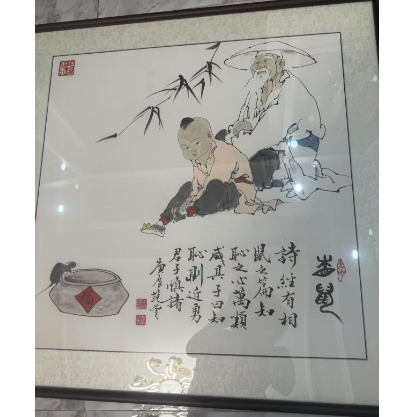 鼠
詩經有相
鼠之篇知
恥之心萬類
咸具子曰知
恥則近勇
君子慎諸